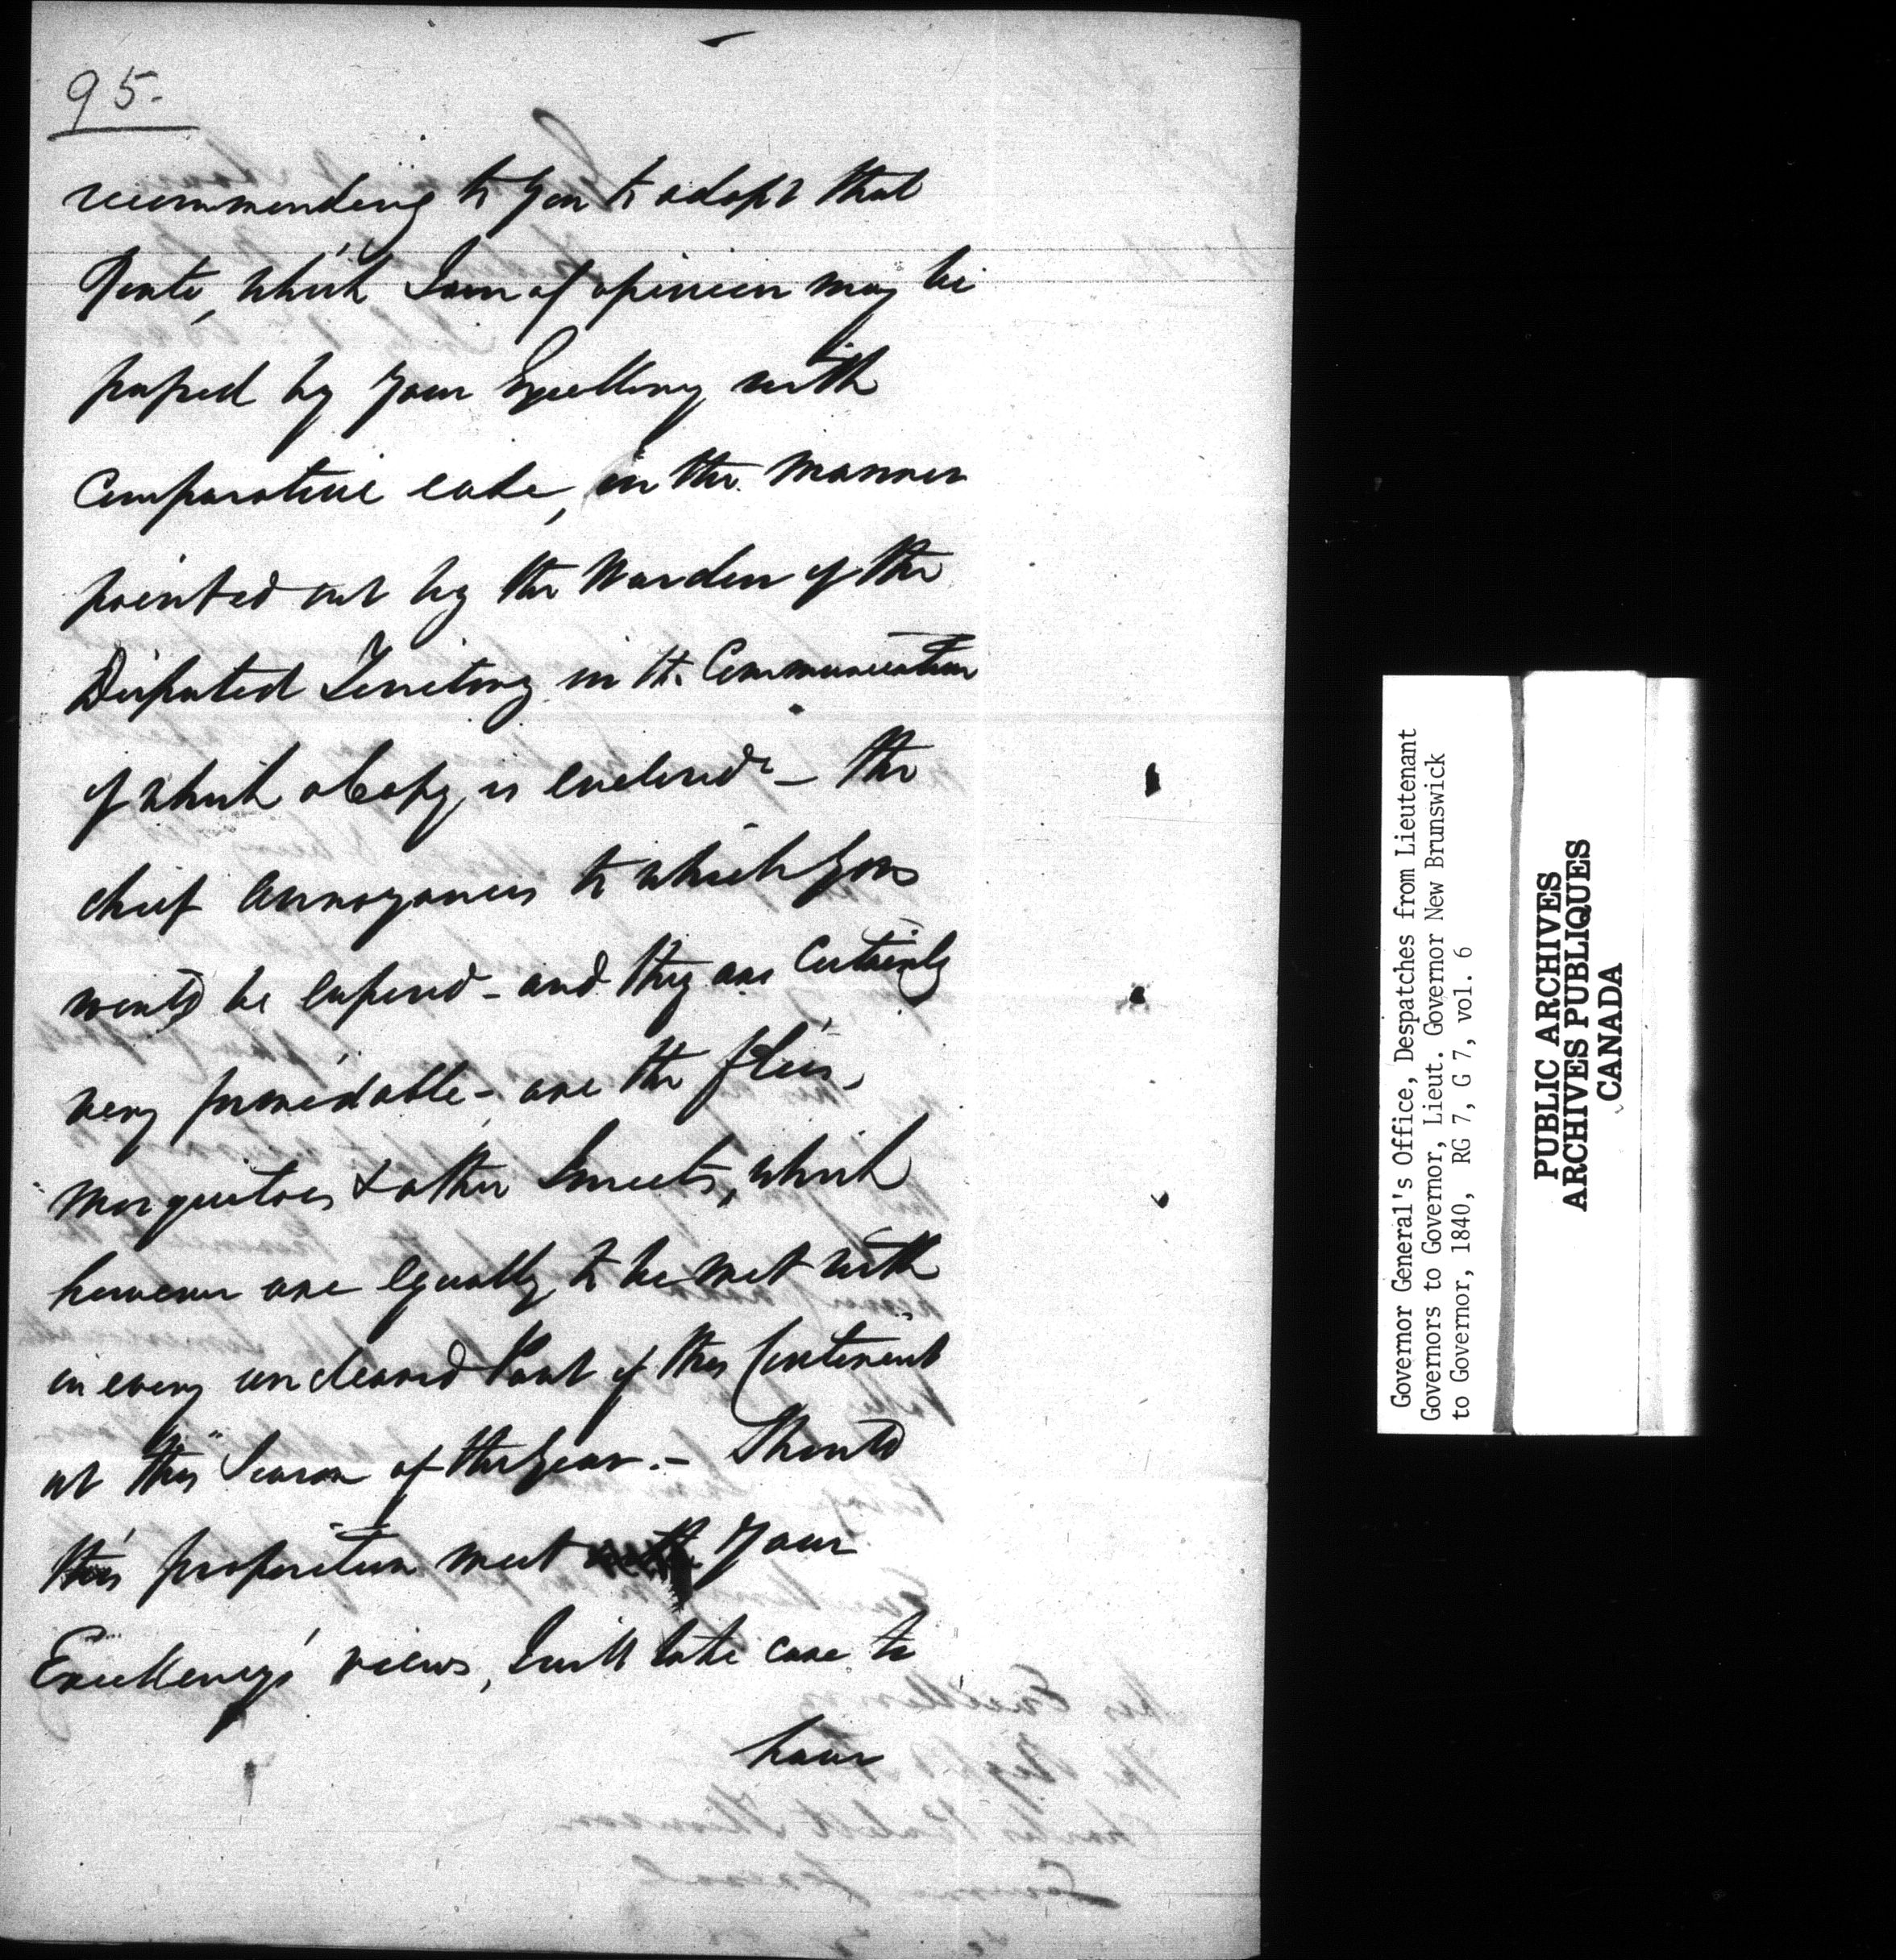 95.
recommending to you to adopt that
Route, which I am of opinion may be
passed by Your Excellency with
Comparative ease, in the manner
pointed out by the Warden of the
Disputed Territory in the Communication
of which a Copy is enclosed – the
chief annoyances to which you
would be exposed – and they are Certainly
very formidable – are the flies,
Mosquitoes & other Insects, which
however are equally to be met with
in every uncleared Part of this Continent
at this Season of the Year. – Should
this proposition meet Your
Excellency's views, I will take care to
have
Governor General's Office, Despatches from Lieutenant
Governors to Governor, Lieut. Governor New Brunswick
to Governor, 1840, RG 7, G 7, vol. 6
PUBLIC ARCHIVES
ARCHIVES PUBLIQUES
CANADA